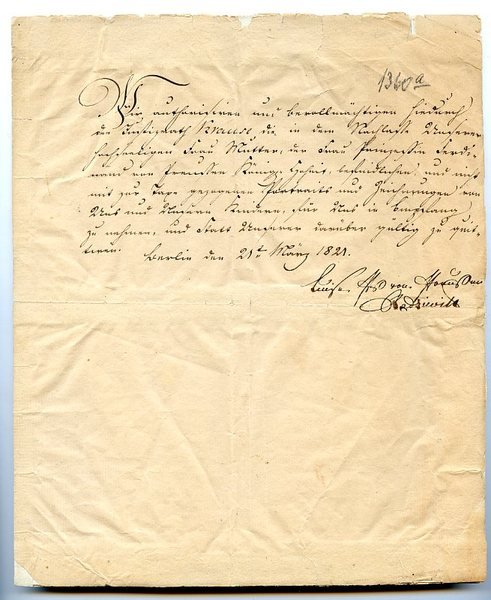 1360a
Wir authorisiren und bevollmächtigen hiedurch
den Justizrath Krause, die in dem Nachlasse Unserer
hochseeligen Frau Mutter, der Frau Prinzessin Ferdi-
nand von Preussen Königl. Hoheit, befindlichen, und nicht
mit zur Taxe gezogenen Portraits und Zeichnungen von
Uns und Unsern Kindern, für Uns in Empfang
zu nehmen, und statt Unserer darüber gültig zu quit-
tiren. Berlin den 21t März 1821.
Luise Pss von Preussen
Radziwill